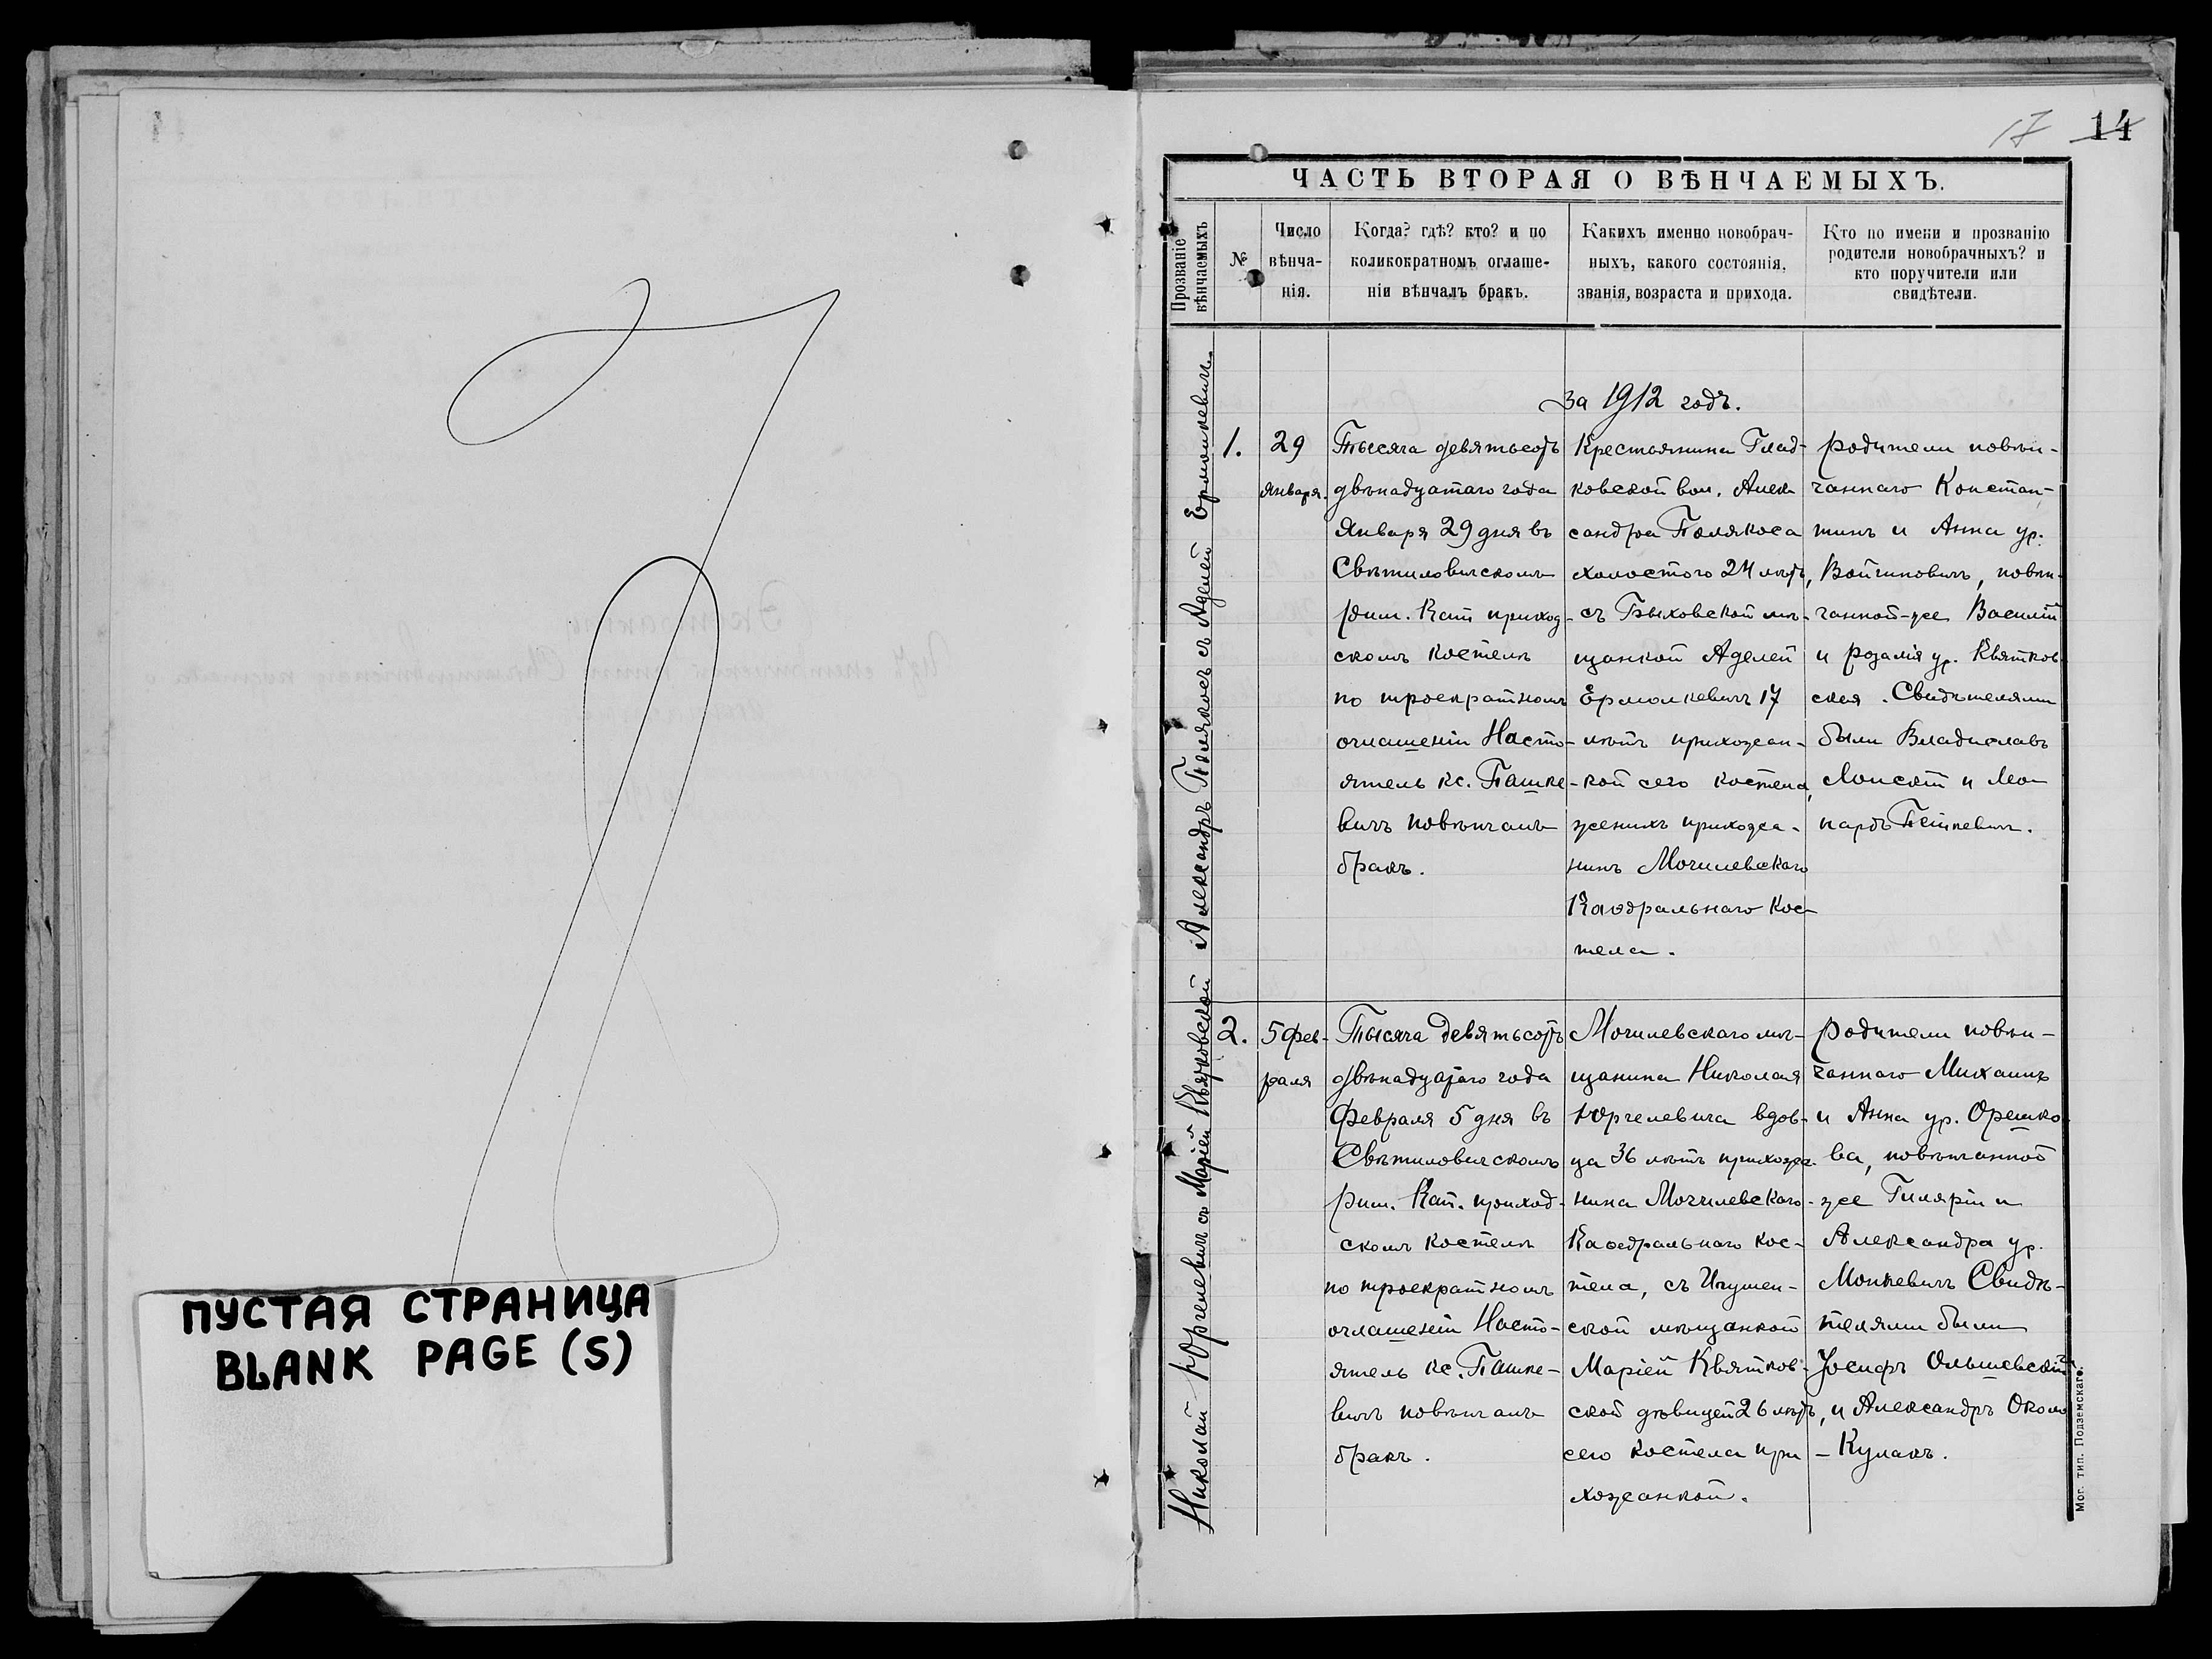 ПУСТАЯ СТРАНИЦА
BLANK PAGE (S)
17 14
ЧАСТЬ ВТОРАЯ О ВѢНЧАЕМЫХЪ.
Прозваніе
вѣнчаемыхъ
№
Число
вѣнча-
нія.
Когда? гдѣ? кто? и по
коликократномъ оглаше-
ніи вѣнчалъ бракъ.
Какихъ именно новобрач-
ныхъ, какого состоянія,
званія, возраста и прихода.
Кто по имени и прозванію
родители новобрачныхъ? и
кто поручители или
свидѣтели.
за 1912 годъ.
Александръ Полякосъ съ Аделей Ермолкевичъ.
1.
29
Января.
Тысяча девятьсотъ
двѣнадцатаго года
Января 29 дня въ
Свѣтиловичскомъ
рим. Кат приход-
скомъ костелѣ
по троекратномъ
оглашеніи Насто-
ятель кс. Пашке-
вичъ повѣнчалъ
бракъ.
Крестьянина Глад-
ковской вол. Алек
сандра Полякоса
холостого 24 лѣтъ,
съ Быховской мѣ-
щанкой Аделей
Ермолкевичъ 17
лѣтъ прихожан-
кой сего костела,
женихъ прихожа-
нинъ Могилевскаго
Каѳдральнаго Кос
тела.
родители повѣн-
чаннаго Констан-
тинъ и Анна ур.
Войтиновичъ, повѣн-
чанной-же Василій
и розалія ур. Квятков
ская. Свидѣтелями
были Владиславъ
Моисят и Лео
нардъ Пешкевичъ.
Николай Юргелевичъ съ Маріей Квятковской
2.
5 фев-
раля
Тысяча девятьсотъ
двѣнадцатаго года
Февраля 5 дня въ
Свѣтиловичскомъ
рим. Кат. приход-
скомъ костелѣ
по троекратномъ
оглашеніи Насто-
ятель кс. Пашке-
вичъ повѣнчалъ
бракъ.
Могилевскаго мѣ-
щанина Николая
Юргелевича вдов-
ца 36 лѣтъ прихожа-
нина Могилевскаго
Каѳедральнаго кос-
тела, съ Игумен-
ской мѣщанкой
Маріей Квятков-
ской дѣвицей 26 лѣтъ,
сего костела при
хожанкой.
родители повѣн-
чаннаго Михаилъ
и Анна ур. Орешко
ва, повѣнчанной
же Гиляріи и
Александра ур.
Монкевичъ Свидѣ-
телями были
Іосифъ Ольшевскій
и Александръ Около
-Кулакъ.
Мог. тип. Подземскаго.